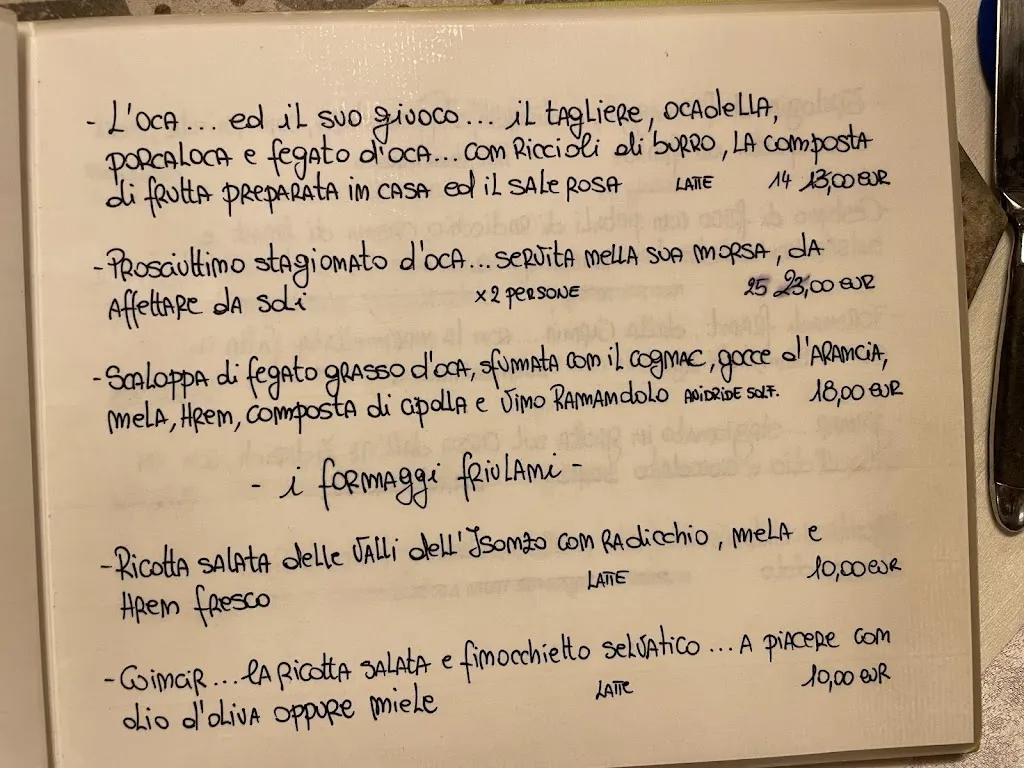 - L'OCA... ed il suo giuoco... il tagliere, ocadella,
porcaloca e fegato d'oca... con riccioli di burro, la composta
di frutta preparata in casa ed il sale rosa LATTE 14 13,00 EUR
- Prosciuttino stagionato d'oca... servita nella sua morsa, da
affettare da soli x 2 PERSONE 25 23,00 EUR
- Scaloppa di fegato grasso d'oca, sfumata con il cognac, gocce d'arancia,
mela, Hren, composta di cipolla e vino Ramandolo ANIDRIDE SOLF. 18,00 EUR
- i formaggi friulani -
- Ricotta salata delle Valli dell'Isonzo con radicchio, mela e
Hren fresco LATTE 10,00 EUR
- ...la ricotta salata e finocchietto selvatico... a piacere con
olio d'oliva oppure miele LATTE 10,00 EUR